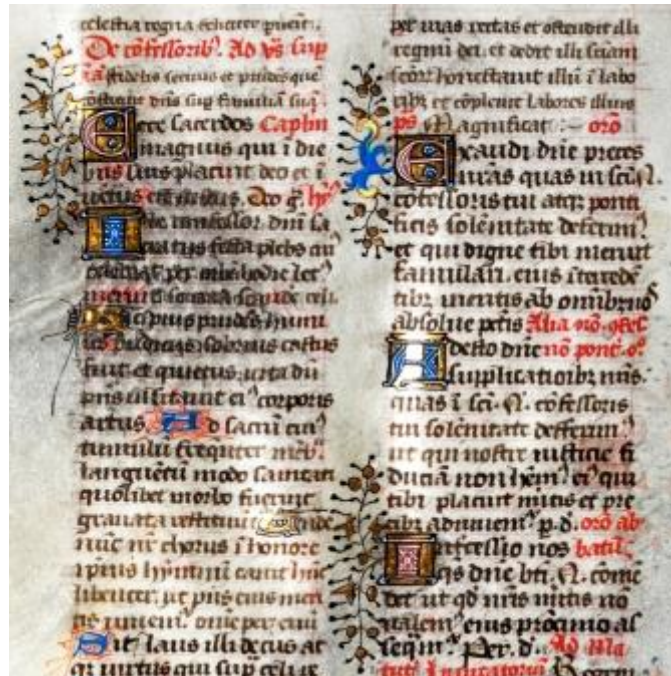 celestia regna feliciter
De cōfessorib⁹. Ad vs̄ sup
fidelis seruus et prudēs quē
dn̄s sup familiā suā.
Ecce sacerdos Caplm̄
magnus qui ī die
bus suis placuit deo et ī
uētus est iustus. Deo ḡ. hy⁹
Iste confessor dn̄i sa
cratus festa plebs cui⁹
celebrat per orbē hodie let⁹
meruit secreta scāde celi.
Qui pius prudēs humi
lis pudicus sobrius castus
fuit et quietus uita dū
p̄ns ei⁹ corporis
artus. Ad sacrū cui⁹
tumulū frequēter mēb⁹
languētū modo sanitati
quolibet morbo fuerint
grauata restituunt. Unde
nūc nr̄ chorus ī honore
ipsius hymnū canit hūc
libenter ut piis eius meri
tis omne per euū
Sit laus illi decus at
qz uirtus qui sup celi
per uias rectas et ostendit illi
regnū dei. et dedit illi sciam
scōr honestauit illū ī labo
ribz et cōpleuit labores illius
ps̄ Magnificat :- orō
Exaudi dn̄e preces
nr̄as quas in sc̄i .N.
cōfessoris tui atqz ponti
ficis solēnitate deferim⁹.
et qui digne tibi meruit
famulari. eius ītercedē
tibz meritis ab omibz nos
absolue p̄ctis Alia nō
Adesto dn̄e nō pont. o⁹.
supplicatioībz nr̄is.
quas ī sc̄i .N. cōfessoris
tui solēnitate defferim⁹.
ut qui nostre iusticie fi
duciā non hēm⁹ ei⁹ qui
tibi placuit mītis et pre
cibz adiuuem⁹. p. d. orō ab
Intercessio nos batis.
qs dn̄e bt̄i .N. cōmē
det ut qd̄ nr̄is mītis nō
ualem⁹ eius p̄rocinio as
seqm⁹. Per. d. Ad Ma
tut⁹ Inuitatoriū Regem